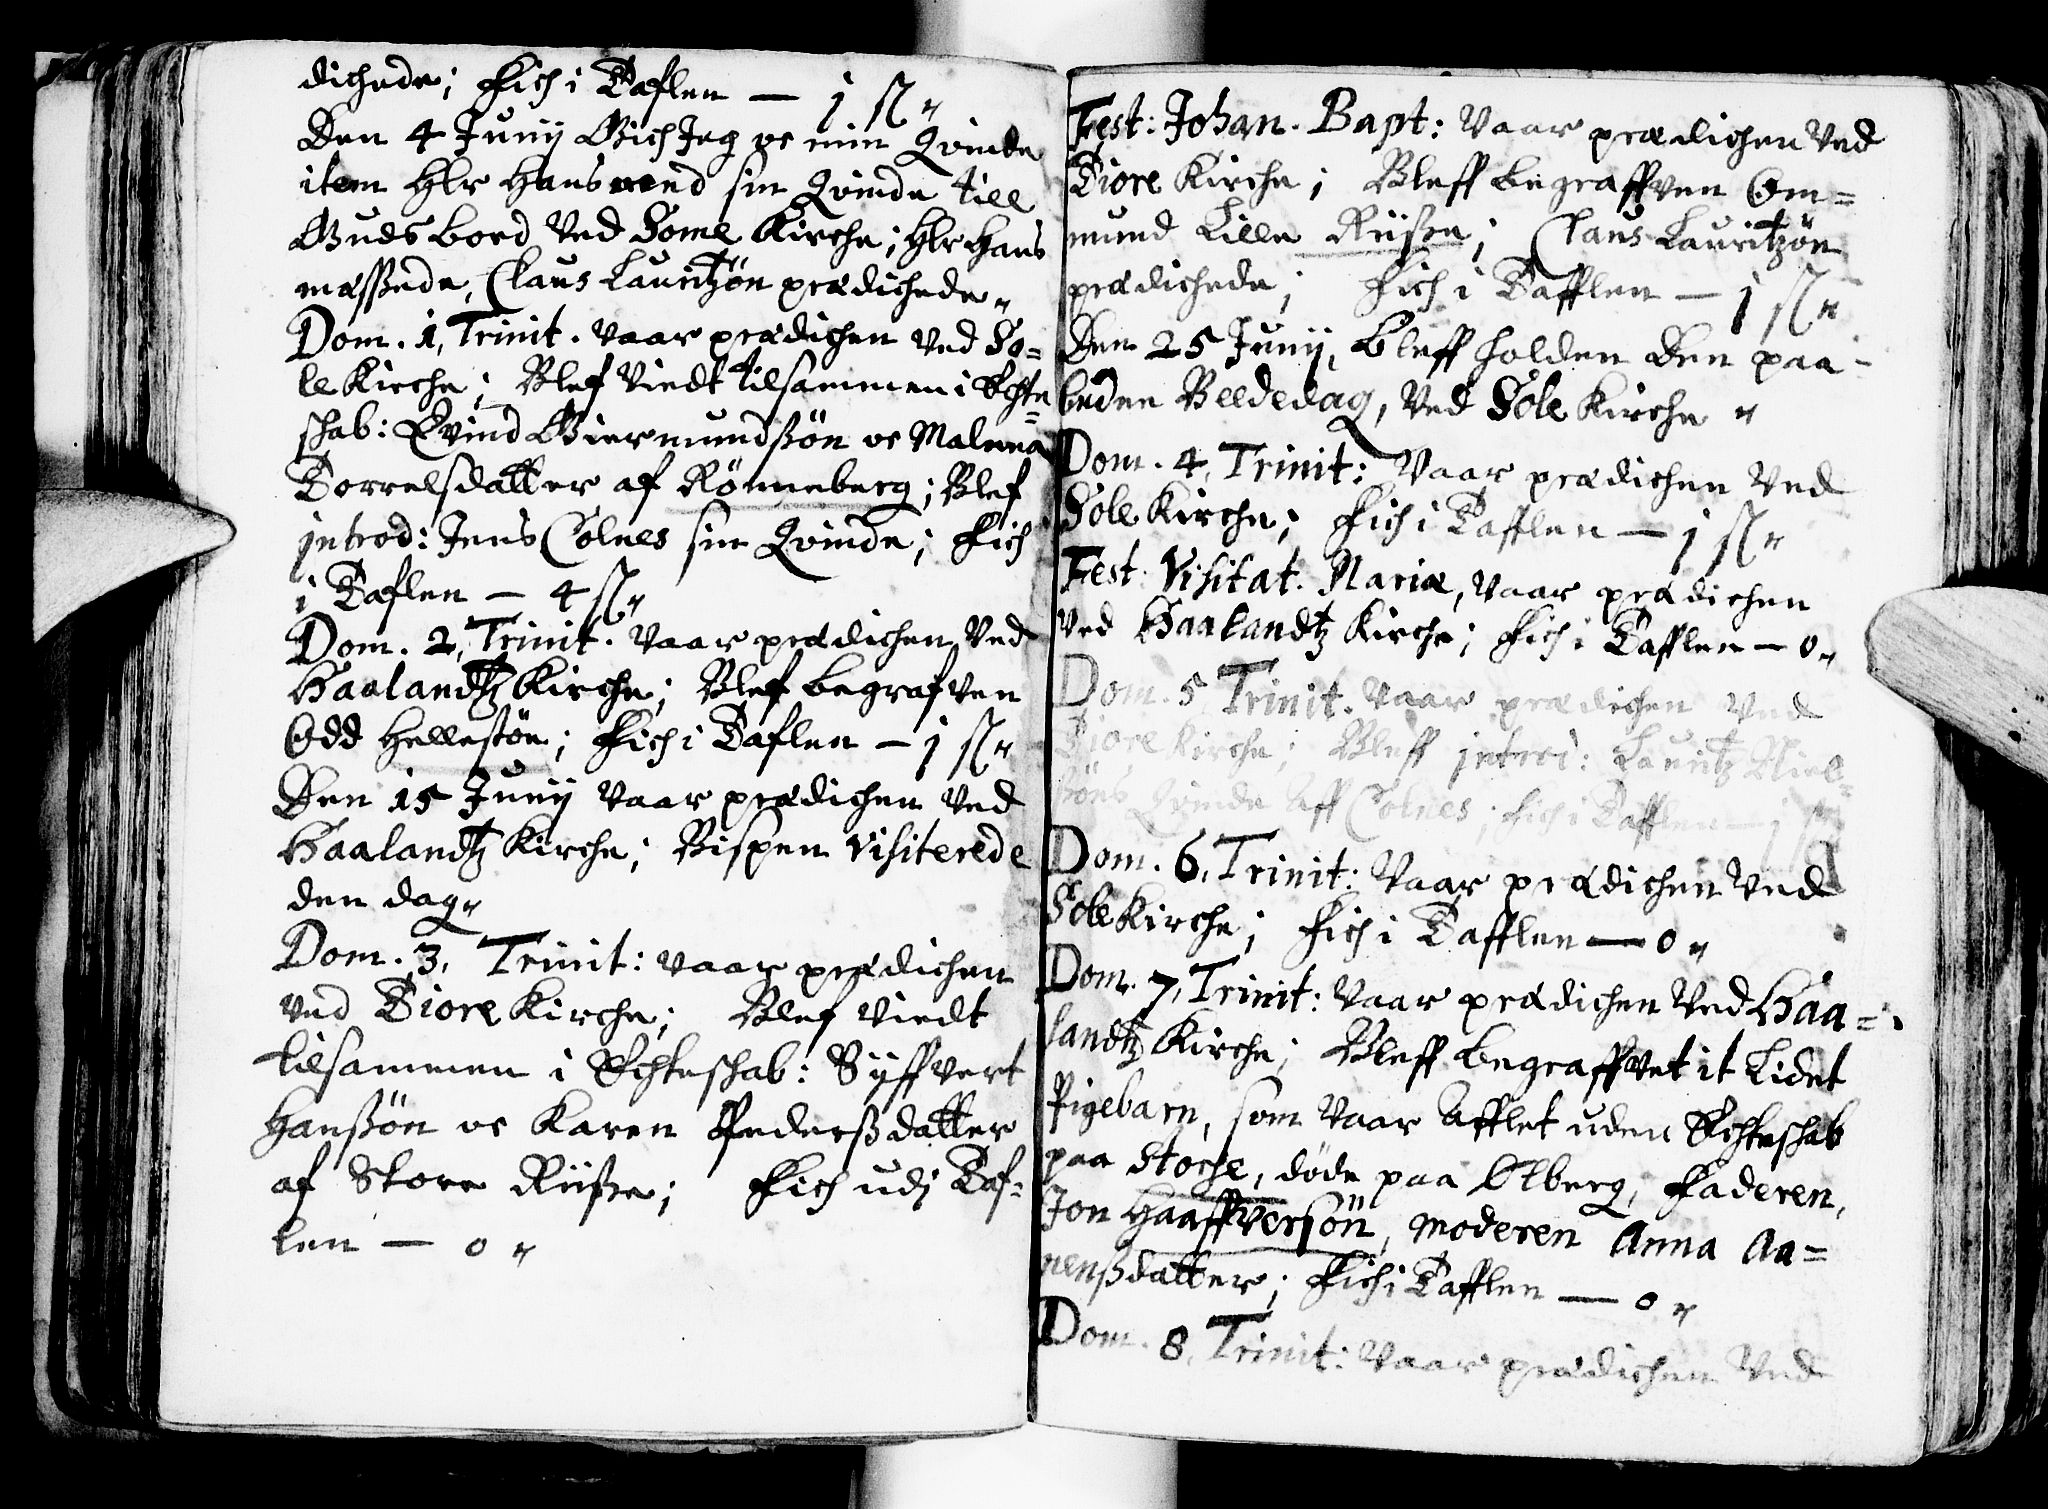 dichede; Fich i Taflen — 1 sk"
Den 4 Junij Gich Jeg oc min Qvinde
item Hlr Hans med sin Qvinde till
Guds bord Ved Some Kirche; Hlr Hans
messede, Claus Lauritzön prædichede"
Dom. 1, Trinit. vaar prædichen ved So=
le Kirche; Blef Viedt tilsammen i Echte=
schab: Evind Giermundßön oc Malena
Torrelsdatter af Rönneberg; Blef
introd: Jens Colnes sin Qvinde; Fich
i Taflen — 4 sk"
Dom. 2, Trinit. vaar prædichen Ved
Haalandtz Kirche; Blef begrafven
Odd Helleßön; Fich i Taflen — 1 sk"
Den 15 Junij vaar prædichen Ved
Haalandtz Kirche; Bispen visiterede
den dag"
Dom. 3, Trinit: vaar prædichen
ved Tiore Kirche; Blef Viedt
tilsammen i Echteschab: Syffvert
Hanßön oc Karen Pederßdatter
af Store Riiße; Fich udj Taf=
len — 0 "
Fest: Johan. Bapt: Vaar prædichen Ved
Tiore Kirche; Bleff begraffven Om=
mund Lille Riiße; Claus Lauritzön
prædichede; Fich i Tafflen — 1 sk"
Den 25 Junij, bleff holden Den paa=
budne Beededag, Ved Sole Kirche "
Dom. 4, Trinit: Vaar prædichen Ved
Sole Kirche; Fich i Tafflen — 1 sk"
Fest Visitat. Mariæ, Vaar prædichen
Ved Haalandtz Kirche; Fich i Tafflen — 0"
Dom. 5 Trinit. Vaar prædichen Ved
Tiore Kirche; Bleff introd: Lauritz Niel=
söns Qvinde Aff Colnes; Fich i Tafflen — 1 sk
Dom. 6, Trinit: Vaar prædichen Ved
Sole Kirche; Fich i Tafflen — 0 "
Dom. 7, Trinit: Vaar prædichen Ved Haa=
landtz Kirche; Bleff begraffvet it Lidet
Pigebarn, som Vaar Afflet uden Echteschab
paa Stoche, döde paa Olberg, Faderen,
Jon Haaffversön, Moderen Anna Aa=
nenßdatter; Fich i Tafflen — 0 "
Dom. 8, Trinit: Vaar prædichen Ved